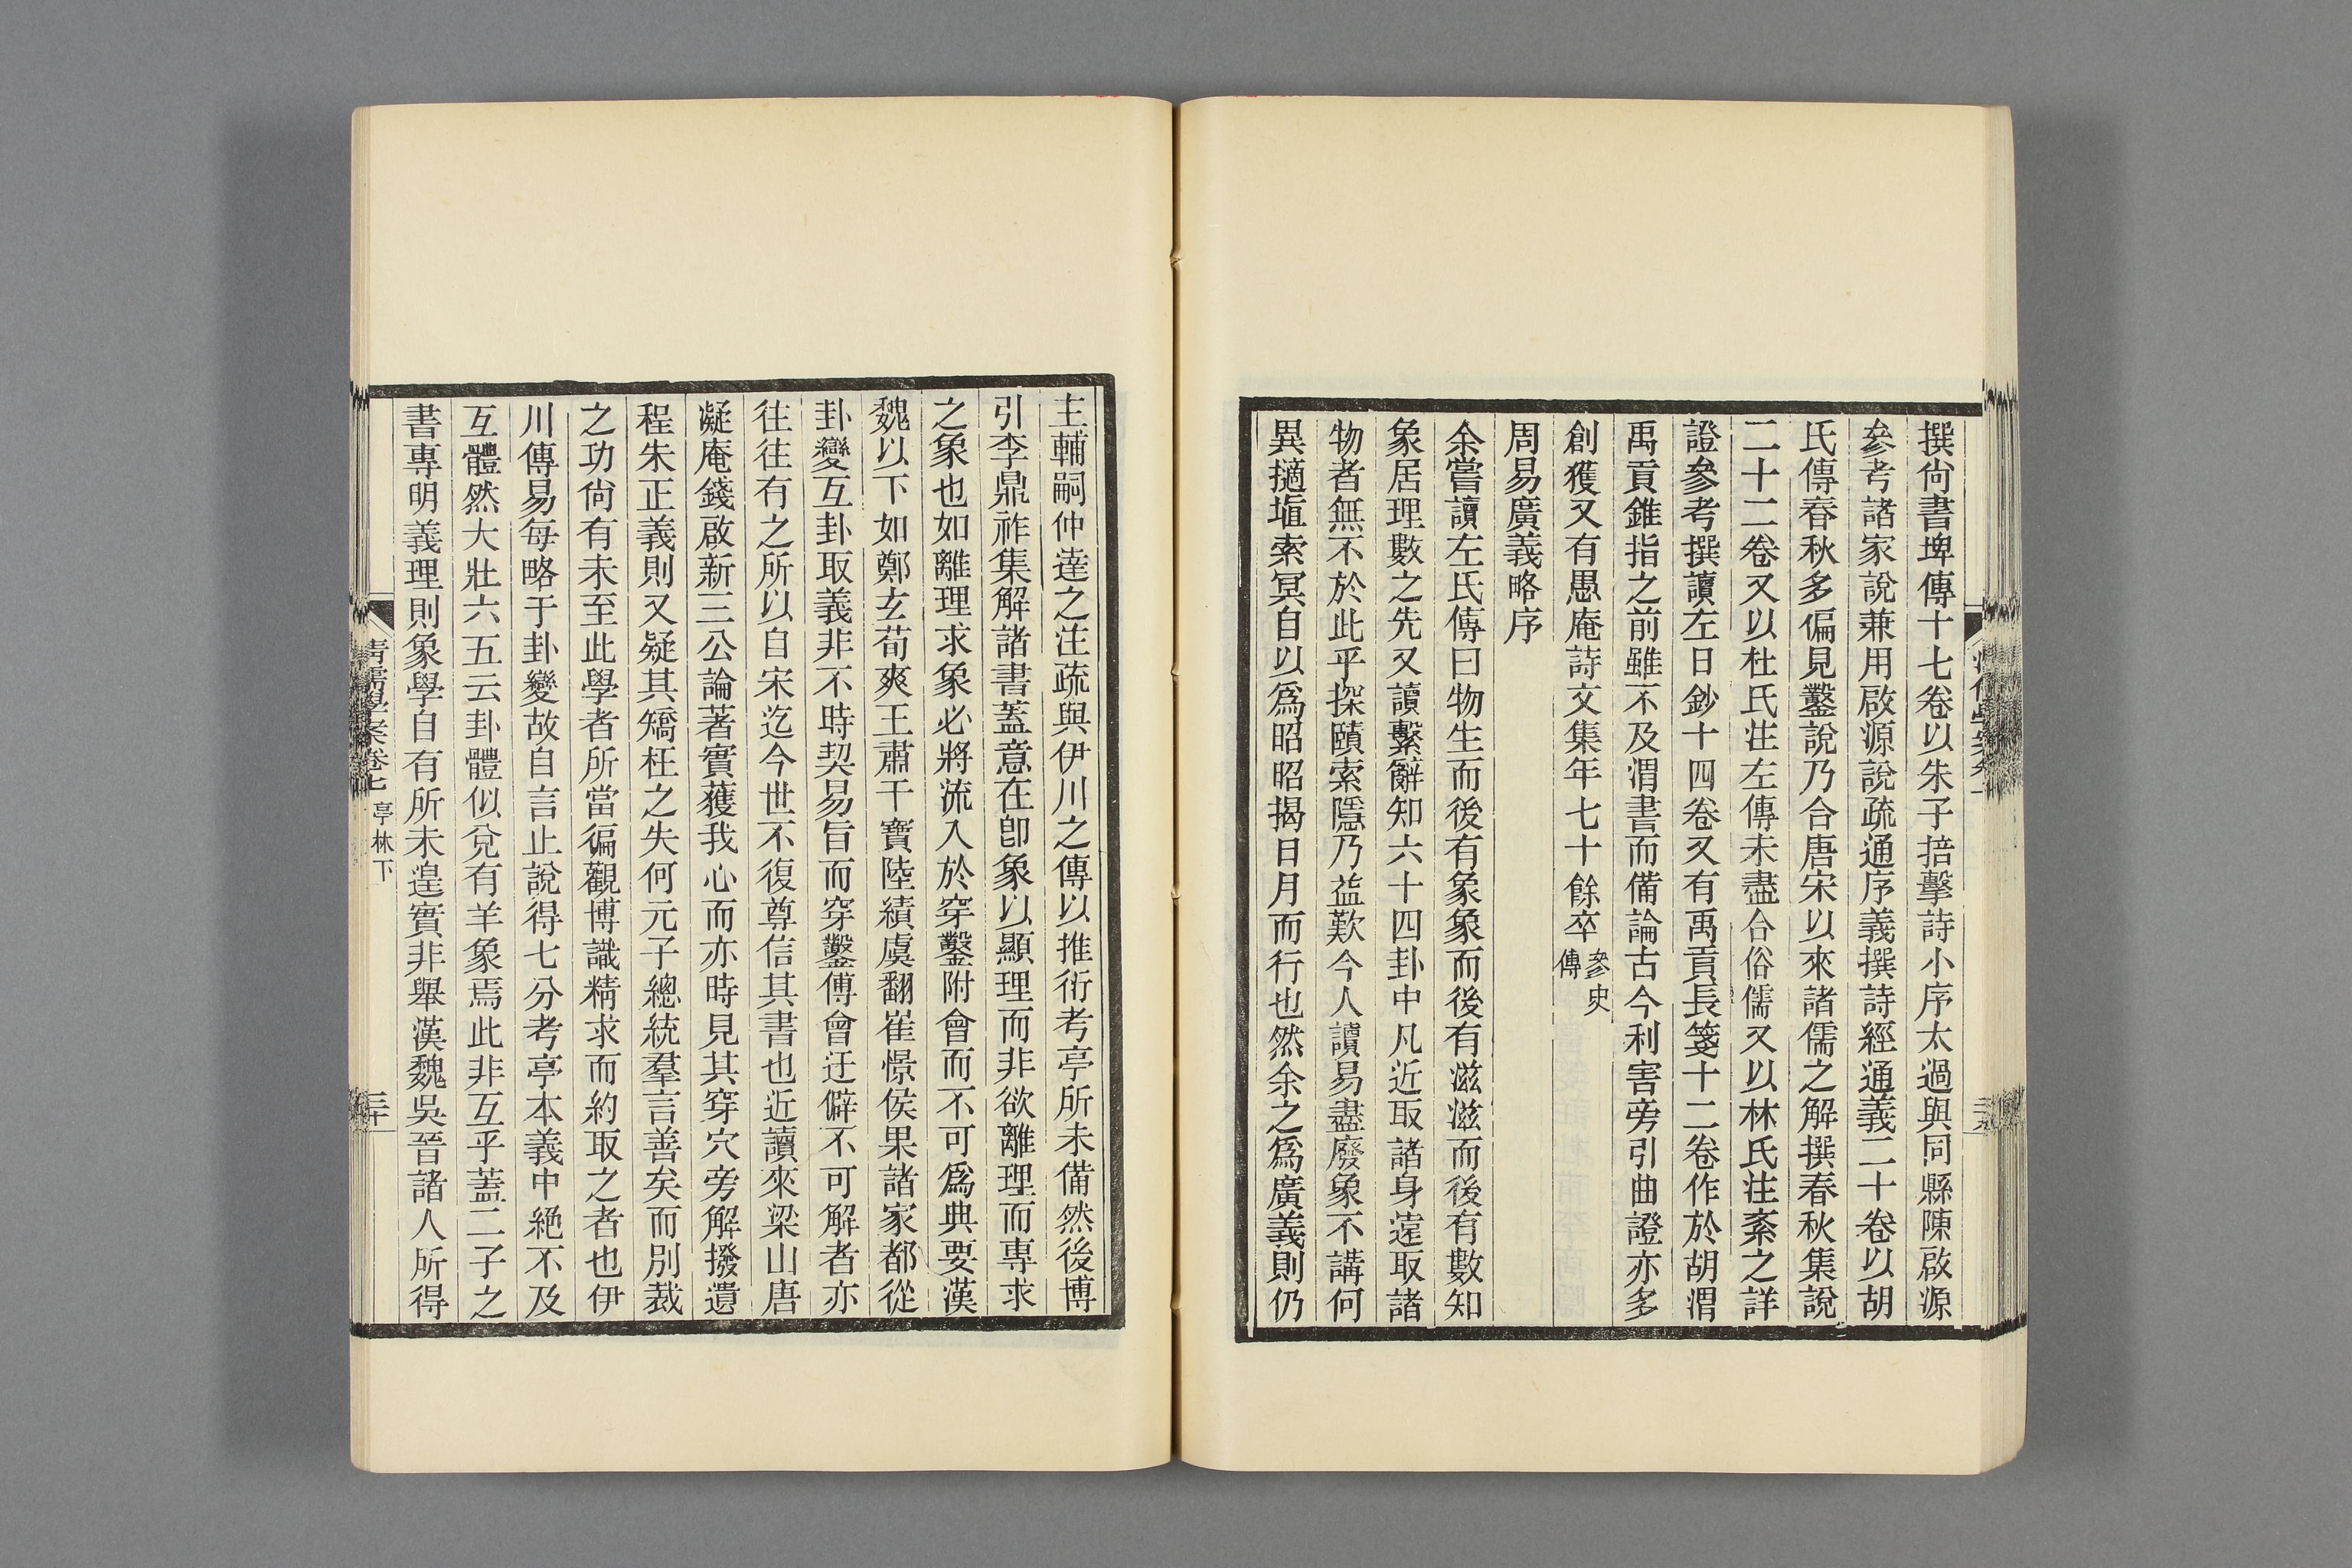 撰尙書埤傳十七卷以朱子掊擊詩小序太過與同縣陳啟源
參考諸家說兼用啟源說疏通序義撰詩經通義二十卷以胡
氏傳春秋多偏見鑿說乃合唐宋以來諸儒之解撰春秋集說
二十二卷又以杜氏注左傳未盡合俗儒又以林氏注紊之詳
證參考撰讀左日鈔十四卷又有禹貢長箋十二卷作於胡渭
禹貢錐指之前雖不及渭書而備論古今利害旁引曲證亦多
創獲又有愚庵詩文集年七十餘卒參史傳
周易廣義略序
余嘗讀左氏傳曰物生而後有象象而後有滋滋而後有數知
象居理數之先又讀繫辭知六十四卦中凡近取諸身遠取諸
物者無不於此乎探賾索隱乃益歎今人讀易盡廢象不講何
異擿埴索冥自以爲昭昭揭日月而行也然余之爲廣義則仍
主輔嗣仲達之注疏與伊川之傳以推衍考亭所未備然後博
引李鼎祚集解諸書蓋意在卽象以顯理而非欲離理而專求
之象也如離理求象必將流入於穿鑿附會而不可爲典要漢
魏以下如鄭玄荀爽王肅干寶陸績虞翻崔憬侯果諸家都從
卦變互卦取義非不時契易旨而穿鑿傅會迂僻不可解者亦
往往有之所以自宋迄今世不復尊信其書也近讀來梁山唐
凝庵錢啟新三公論著實獲我心而亦時見其穿穴旁解撥遺
程朱正義則又疑其矯枉之失何元子總統羣言善矣而別裁
之功尙有未至此學者所當徧觀博識精求而約取之者也伊
川傳易每略于卦變故自言止說得七分考亭本義中絕不及
互體然大壯六五云卦體似兌有羊象焉此非互乎蓋二子之
書專明義理則象學自有所未遑實非舉漢魏吳晉諸人所得
清儒學案卷七 亭林下 三十